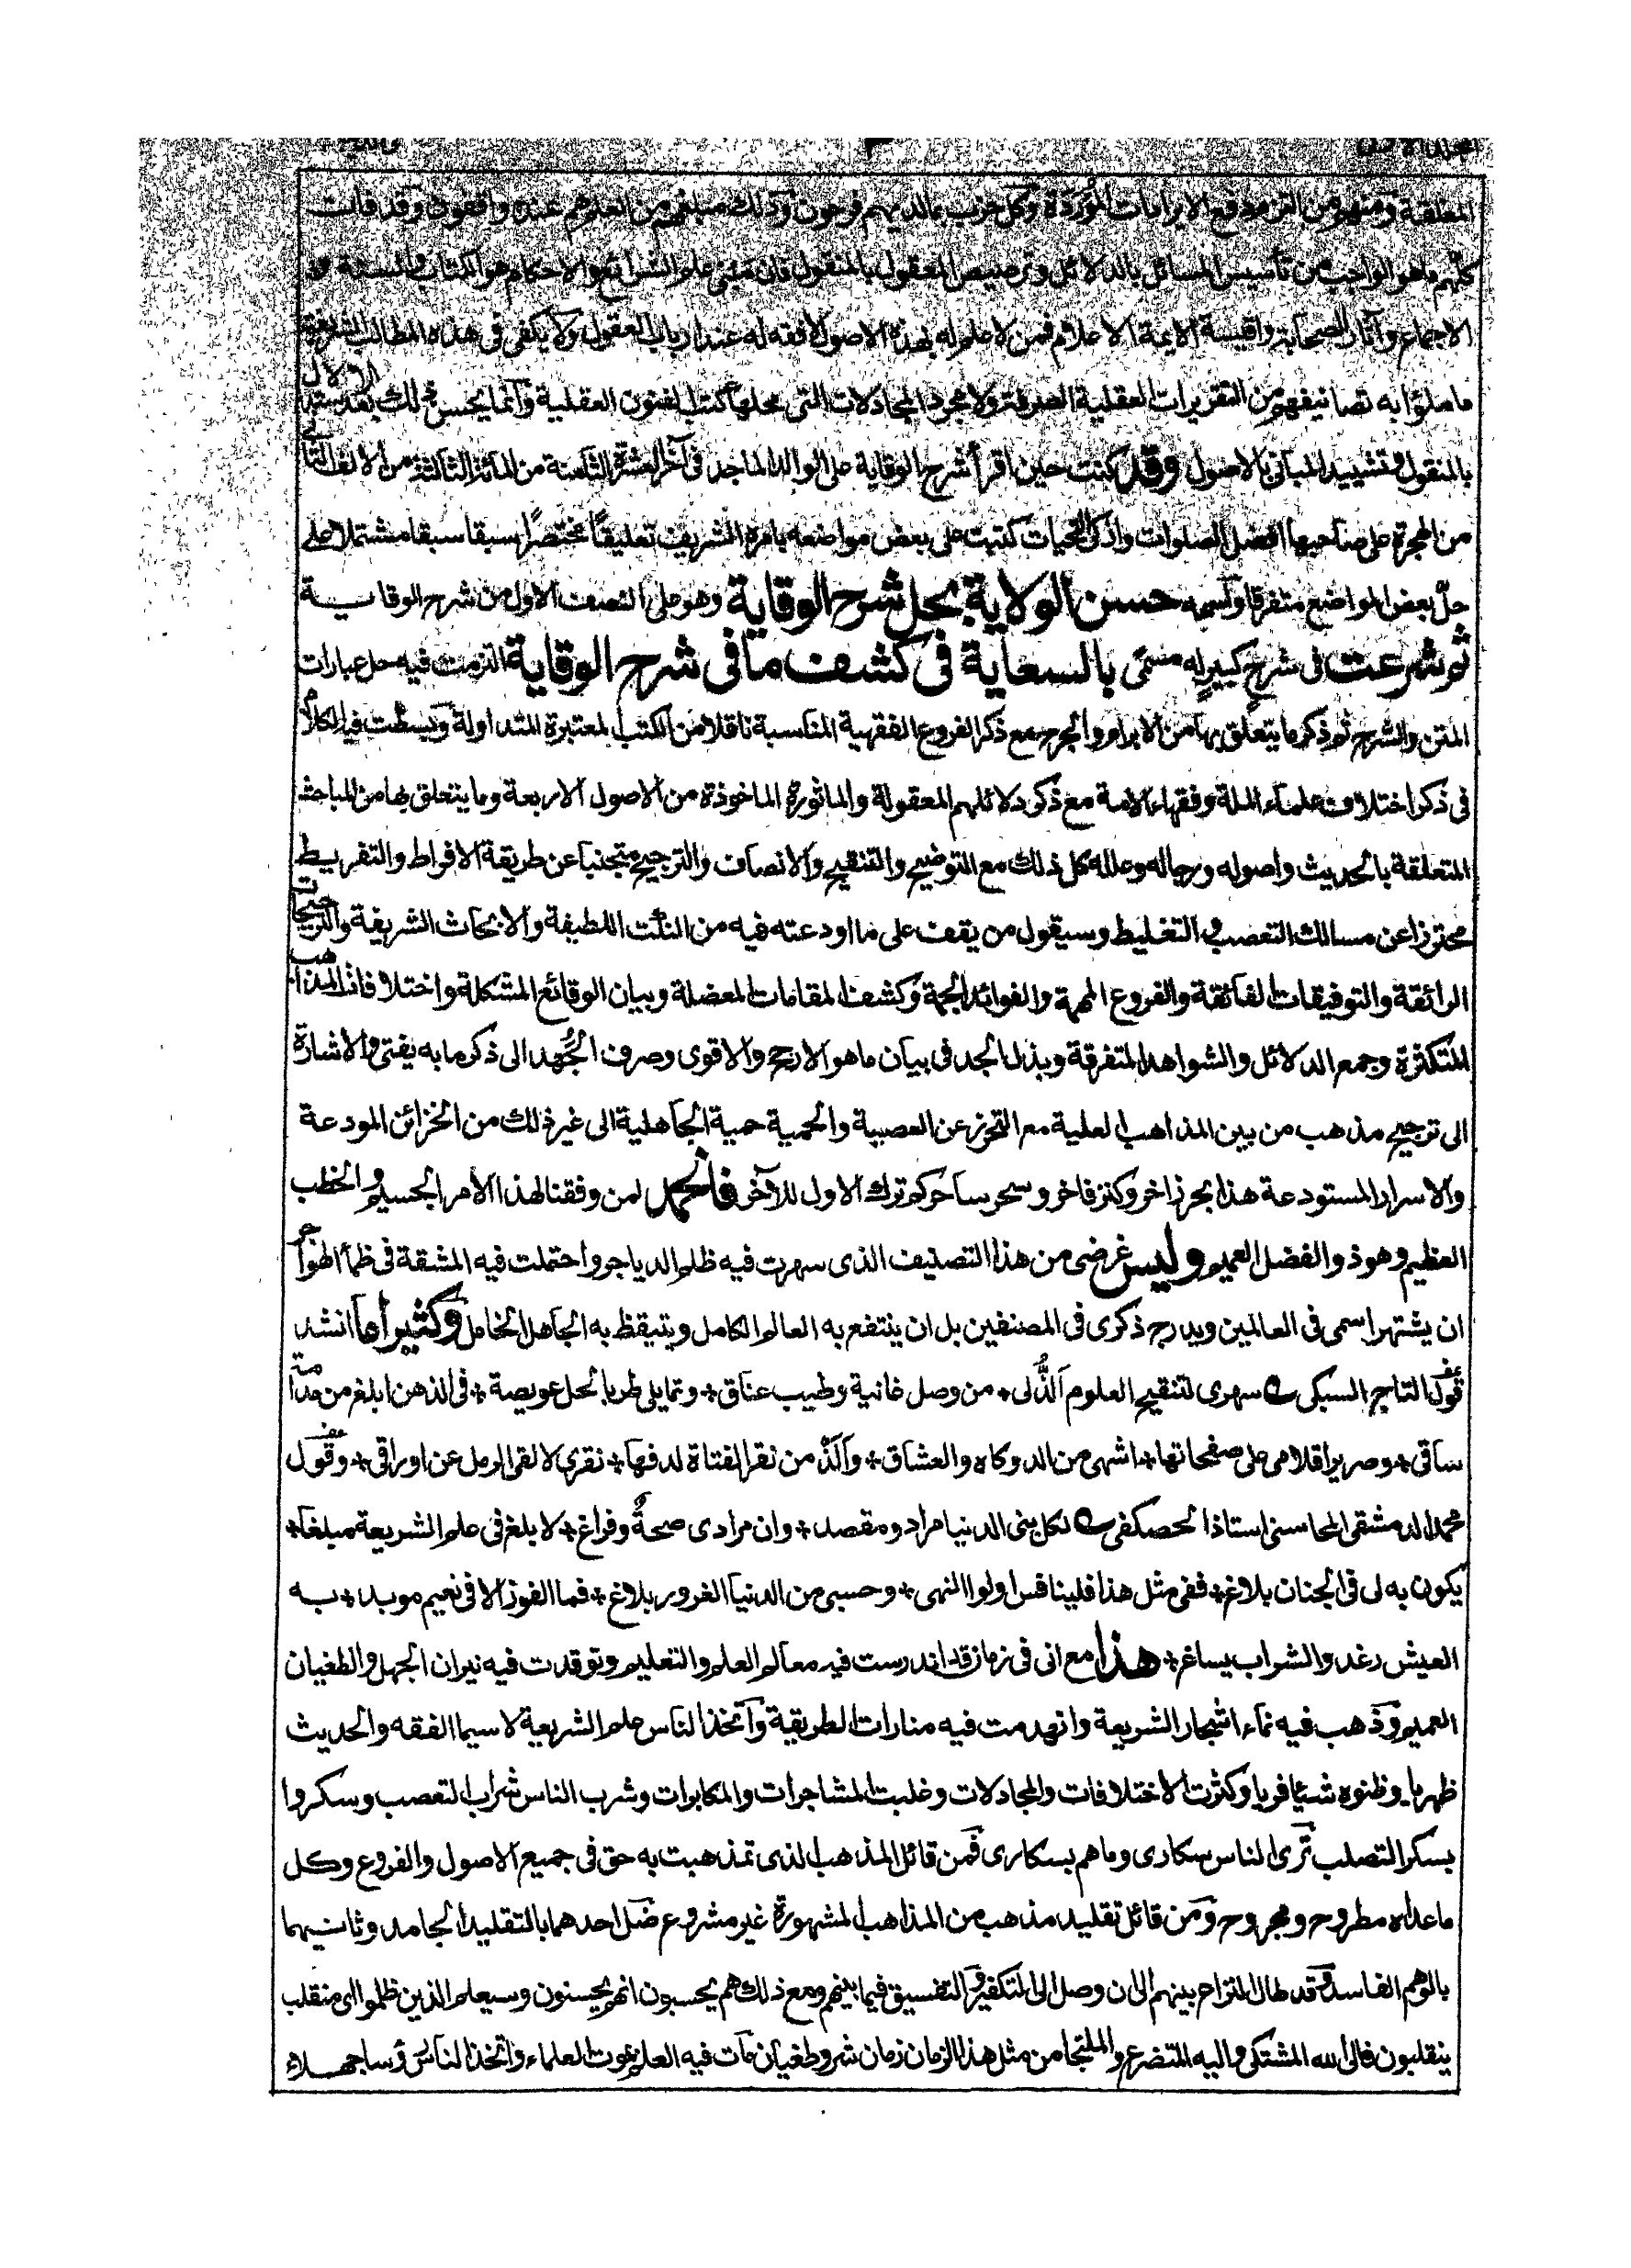 المعلقة ومنهم من التزم دفع الايرادات الموردة وكل حزب بما لديهم فرحون وذلك مبلغهم من العلم وهم عنده واقفون وقد فات
كلهم ما هو الواجب من تأسيس المسائل بالدلائل وترصيص المعقول بالمنقول فان مبنى علم الشرائع والاحكام هو الكتاب والسنة و
الاجماع وآثار الصحابة واقيسة الايمة الاعلام فمن لا علم له بهذه الاصول لا فقه له عند ارباب العقول ولا يكفى فى هذه المطالب الشريفة
ما ملؤا به تصانيفهم من التقريرات العقلية الصرفة ولا مجرد المجادلات التى محلها كتب الفنون العقلية وانما يحسن ذلك بعد الاستدلال
بالمنقول وتشييد المبانى بالاصول وقد كنت حين اقرأ شرح الوقاية على الوالد الماجد فى آخر العشرة الثامنة من المائة الثالثة من الالف الثانى
من الهجرة على صاحبها افضل الصلوات وازكى التحيات كتبت على بعض مواضعه بامره الشريف تعليقا مختصرا سبقا سبقا مشتملا على
حل بعض المواضع متفرقا واسمه حسن الولاية بحل شرح الوقاية وهو على النصف الاول من شرح الوقاية
ثم شرعت فى شرح كبير له مسمى بالسعاية فى كشف ما فى شرح الوقاية التزمت فيه حل عبارات
المتن والشرح ثم ذكر ما يتعلق بها من الابرام والجرح مع ذكر الفروع الفقهية المناسبة ناقلا من الكتب المعتبرة المتداولة وبسطت فيه الكلام
فى ذكر اختلاف علماء الملة وفقهاء الامة مع ذكر دلائلهم المعقولة والماثورة الماخوذة من الاصول الاربعة وما يتعلق بها من المباحث
المتعلقة بالحديث واصوله ورجاله وعلله كل ذلك مع التوضيح والتنقيح والانصاف والترجيح متجنبا عن طريقة الافراط والتفريط
محترزا عن مسالك التعصب والتغليط وسيقول من يقف على ما اودعته فيه من النكت اللطيفة والابحاث الشريفة والترجيحات
الرائقة والتوفيقات الفائقة والفروع المهمة والفوائد الجمة وكشف المقامات المعضلة وبيان الوقائع المشكلة واختلافات المذاهب
المتكثرة وجمع الدلائل والشواهد المتفرقة وبذل الجد فى بيان ما هو الارجح والاقوى وصرف الجهد الى ذكر ما به يفتى والاشارة
الى ترجيح مذهب من بين المذاهب العلية مع التحرز عن العصبية والحمية حمية الجاهلية الى غير ذلك من الخزائن المودعة
والاسرار المستودعة هذا بحر زاخر وكنز فاخر وسحر ساحر كم ترك الاول للآخر فالحمد لمن وفقنا لهذا الامر الجسيم والخطب
العظيم وهو ذو الفضل العميم وليس غرضى من هذا التصنيف الذى سهرت فيه ظلم الدياجر واحتملت فيه المشقة فى ظمأ الهواجر
ان يشتهر اسمى فى العالمين ويدرج ذكرى فى المصنفين بل ان ينتفع به العالم الكامل ويتيقظ به الجاهل الخامل وكثيرا ما انشد
قول التاج السبكى سهرى لتنقيح العلوم الذ لى ٭ من وصل غانية وطيب عناق ٭ وتمايلى طربا لحل عويصة ٭ فى الذهن ابلغ من مدامة
ساقى ٭ وصرير اقلامى على صفحاتها ٭ اشهى من الدوكاه والعشاق ٭ والذ من نقر الفتاة لدفها ٭ نقرى لالقى الرمل عن اوراقى ٭ وقول
محمد الدمشقى المحاسنى استاذ الحصكفى لكل بنى الدنيا مراد ومقصد ٭ وان مرادى صحة وفراغ ٭ لابلغ فى علم الشريعة مبلغا ٭
يكون به لى فى الجنان بلاغ ٭ ففى مثل هذا فلينافس اولوا النهى ٭ وحسبى من الدنيا الغرور بلاغ ٭ فما الفوز الا فى نعيم موبد ٭ به
العيش رغد والشراب يساغ ٭ هذا مع انى فى زمان قد اندرست فيه معالم العلم والتعليم وتوقدت فيه نيران الجهل والطغيان
العميم وذهب فيه نماء اشجار الشريعة وانهدمت فيه منارات الطريقة واتخذ الناس علم الشريعة لاسيما الفقه والحديث
ظهريا وظنوه شيئا فريا وكثرت الاختلافات والمجادلات وغلبت المشاجرات والمكابرات وشرب الناس شراب التعصب وسكروا
بسكر التصلب ترى الناس سكارى وما هم بسكارى فمن قائل المذهب الذى تمذهبت به حق فى جميع الاصول والفروع وكل
ما عداه مطروح ومجروح ومن قائل تقليد مذهب من المذاهب المشهورة غير مشروع ضل احدهما بالتقليد الجامد وثانيهما
بالوهم الفاسد وقد طال التزاحم بينهم الى ان وصل الى التكفير والتفسيق فيما بينهم ومع ذلك هم يحسبون انهم يحسنون وسيعلم الذين ظلموا اى منقلب
ينقلبون فالى الله المشتكى واليه المتضرع والملتجا من مثل هذا الزمان زمان شر وطغيان مات فيه العلم بموت العلماء واتخذ الناس رؤسا جهلاء